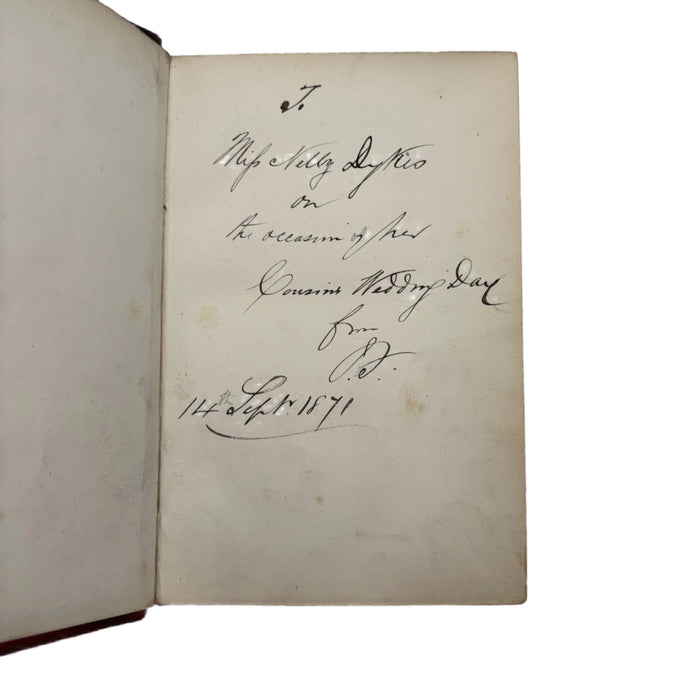 To
Miss Nelly Dykes
on
the occasion of her
Cousins Wedding Day
from
J.F.
14th Septr. 1871